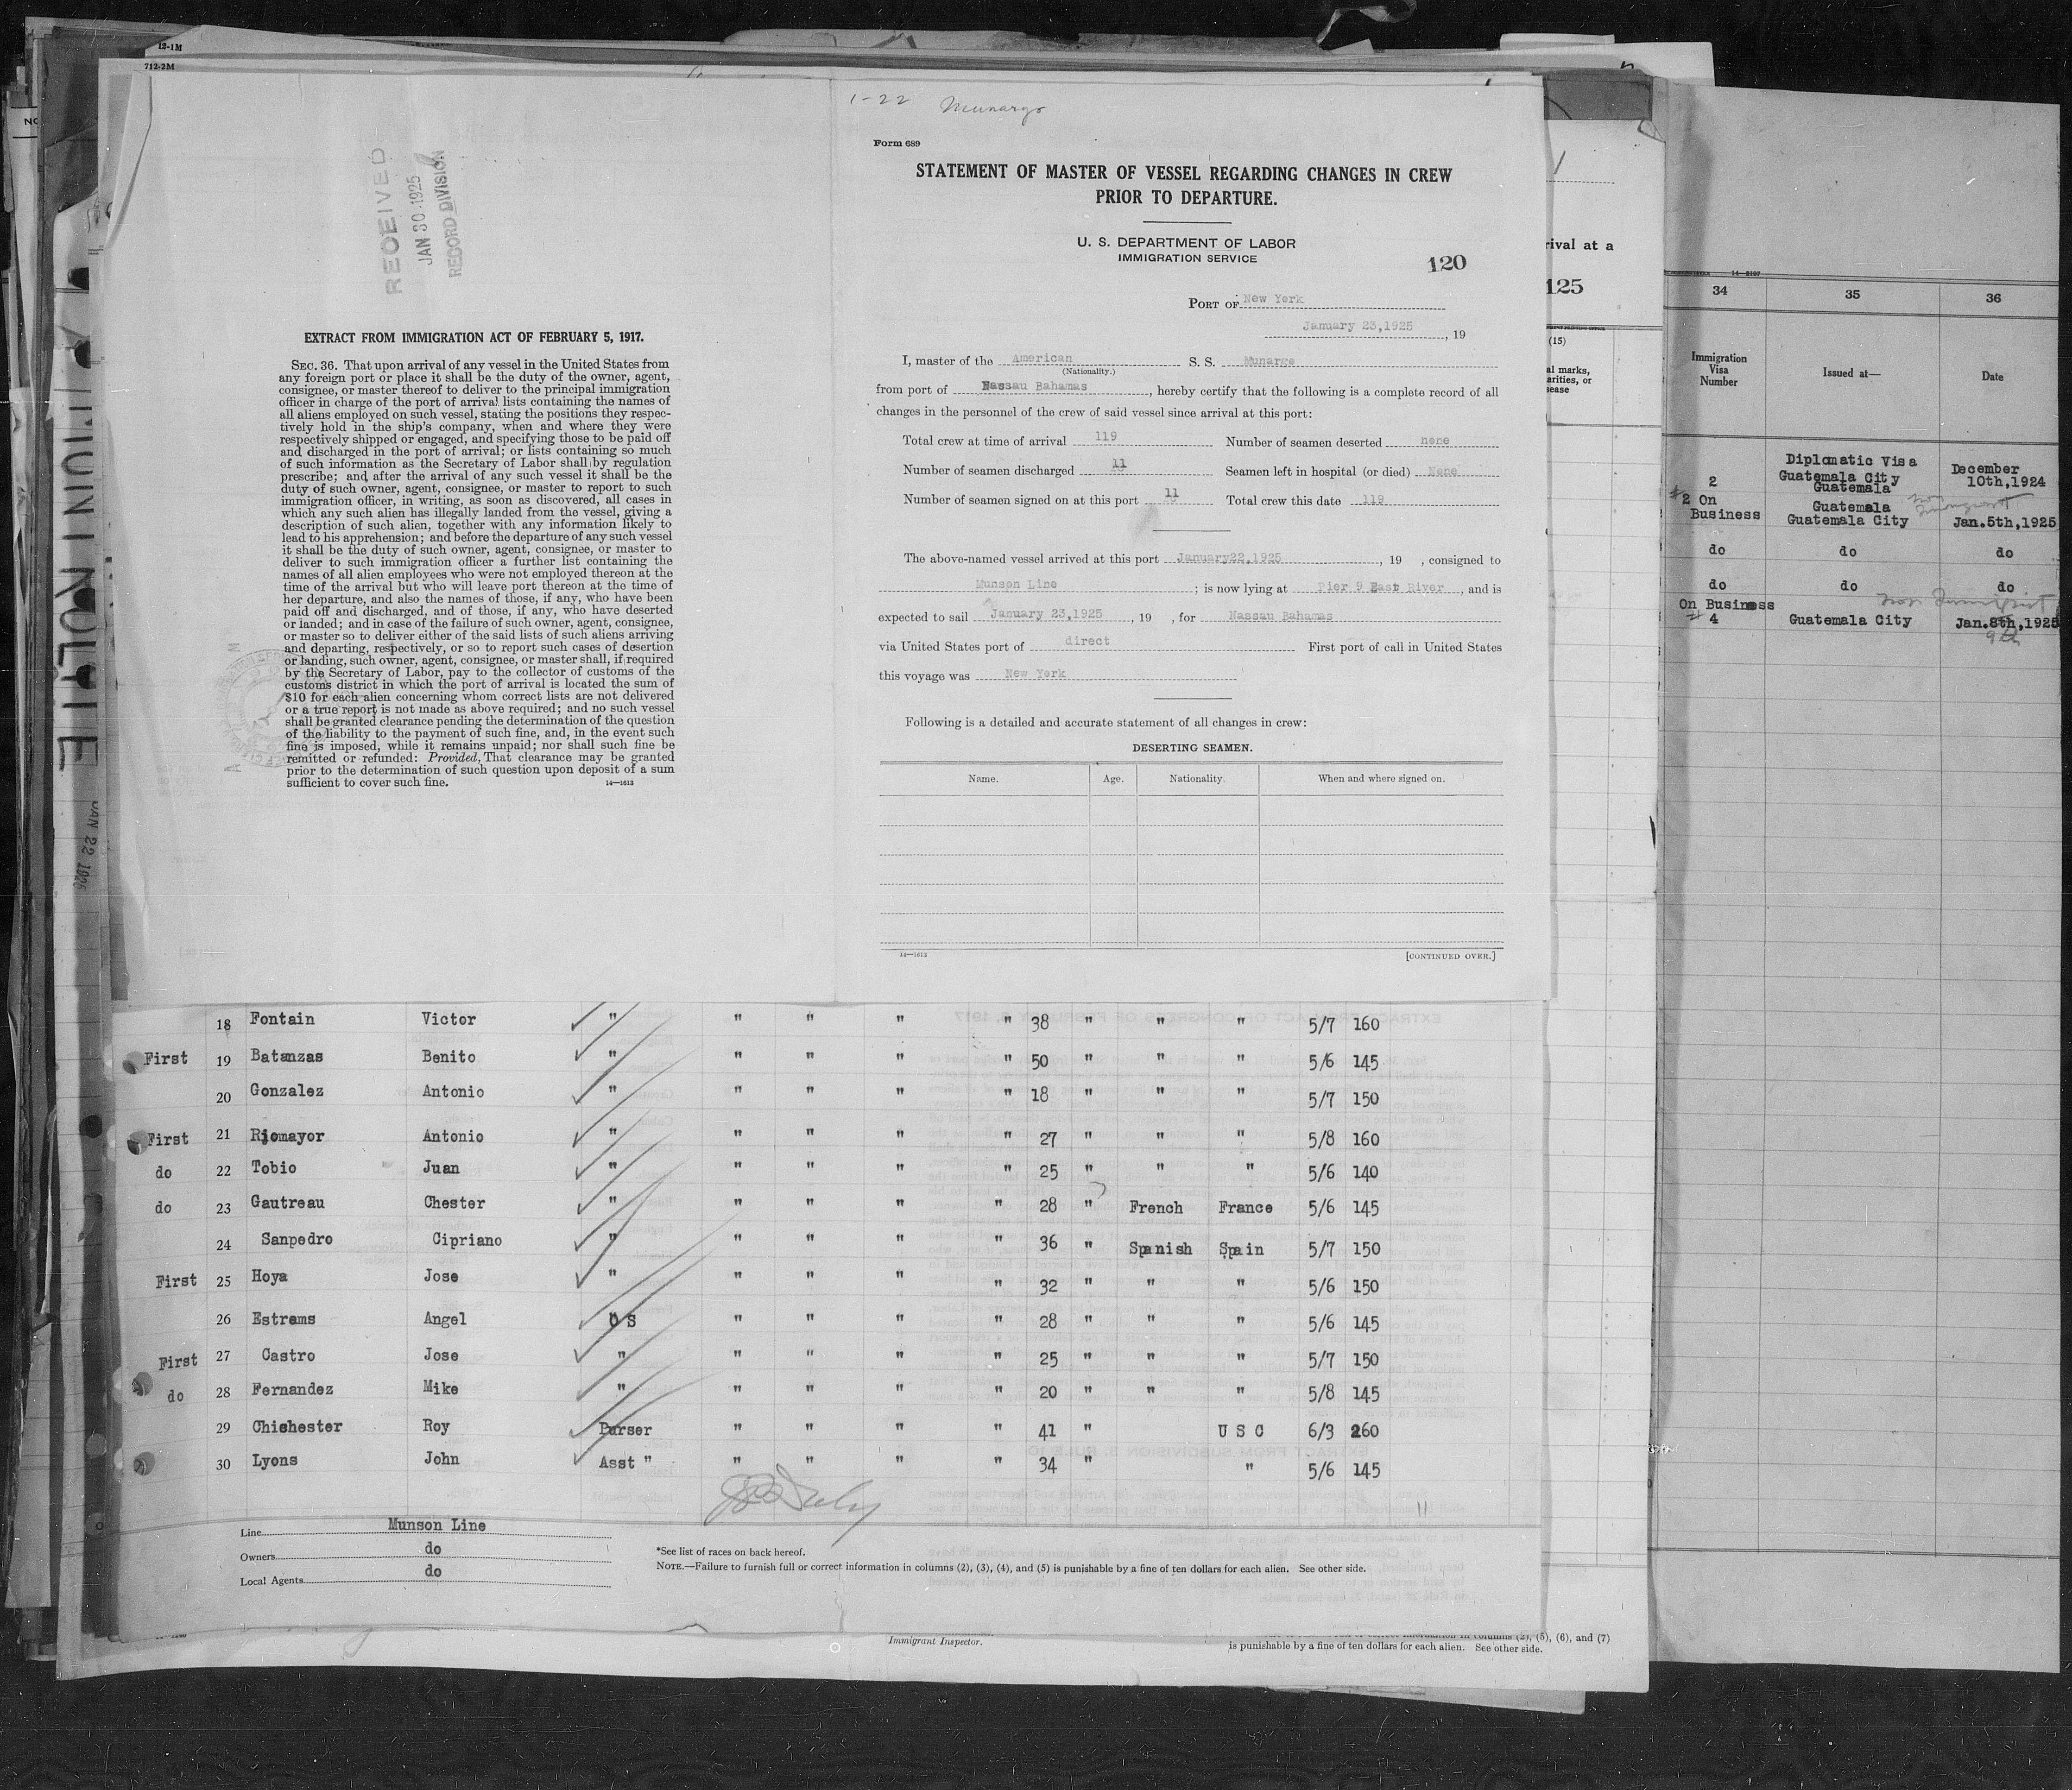 12-1M
712-2M
RECEIVED
JAN 30 1925
RECORD DIVISION
EXTRACT FROM IMMIGRATION ACT OF FEBRUARY 5, 1917.
SEC. 36. That upon arrival of any vessel in the United States from
any foreign port or place it shall be the duty of the owner, agent,
consignee, or master thereof to deliver to the principal immigration
officer in charge of the port of arrival lists containing the names of
all aliens employed on such vessel, stating the positions they respec-
tively hold in the ship's company, when and where they were
respectively shipped or engaged, and specifying those to be paid off
and discharged in the port of arrival; or lists containing so much
of such information as the Secretary of Labor shall by regulation
prescribe; and after the arrival of any such vessel it shall be the
duty of such owner, agent, consignee, or master to report to such
immigration officer, in writing, as soon as discovered, all cases in
which any such alien has illegally landed from the vessel, giving a
description of such alien, together with any information likely to
lead to his apprehension; and before the departure of any such vessel
it shall be the duty of such owner, agent, consignee, or master to
deliver to such immigration officer a further list containing the
names of all alien employees who were not employed thereon at the
time of the arrival but who will leave port thereon at the time of
her departure, and also the names of those, if any, who have been
paid off and discharged, and of those, if any, who have deserted
or landed; and in case of the failure of such owner, agent, consignee,
or master so to deliver either of the said lists of such aliens arriving
and departing, respectively, or so to report such cases of desertion
or landing, such owner, agent, consignee, or master shall, if required
by the Secretary of Labor, pay to the collector of customs of the
customs district in which the port of arrival is located the sum of
$10 for each alien concerning whom correct lists are not delivered
or a true report is not made as above required; and no such vessel
shall be granted clearance pending the determination of the question
of the liability to the payment of such fine, and, in the event such
fine is imposed, while it remains unpaid; nor shall such fine be
remitted or refunded: Provided, That clearance may be granted
prior to the determination of such question upon deposit of a sum
sufficient to cover such fine. 14—1613
1-22 Munargo
Form 689
STATEMENT OF MASTER OF VESSEL REGARDING CHANGES IN CREW
PRIOR TO DEPARTURE.
U. S. DEPARTMENT OF LABOR
IMMIGRATION SERVICE
120
PORT OF New York
January 23,1925, 19
I, master of the American S. S. Munargo
(Nationality.)
from port of Nassau Bahamas, hereby certify that the following is a complete record of all
changes in the personnel of the crew of said vessel since arrival at this port:
Total crew at time of arrival 119 Number of seamen deserted none
Number of seamen discharged 11 Seamen left in hospital (or died) None
Number of seamen signed on at this port 11 Total crew this date 119
The above-named vessel arrived at this port January22,1925, 19 , consigned to
Munson Line; is now lying at Pier 9 East River, and is
expected to sail January 23,1925, 19 , for Nassau Bahamas
via United States port of direct First port of call in United States
this voyage was New York
Following is a detailed and accurate statement of all changes in crew:
DESERTING SEAMEN.
Name. Age. Nationality. When and where signed on.
14—1613 [CONTINUED OVER.]
rival at a
125
(15)
al marks,
arities, or
sease
14—2107
34 35 36
Immigration Visa Number Issued at— Date
2 Diplomatic Visa Guatemala City Guatemala December 10th,1924
#2 On Business Guatemala Guatemala City Jan.5th,1925
do do do
do do do
On Business
# 4 Guatemala City Jan.8th,1925
9th
18 Fontain Victor " " " " " 38 " " " 5/7 160
First 19 Batanzas Benito " " " " " 50 " " " 5/6 145
20 Gonzalez Antonio " " " " " 18 " " " 5/7 150
First 21 Riomayor Antonio " " " " " 27 " " " 5/8 160
do 22 Tobio Juan " " " " " 25 " " " 5/6 140
do 23 Gautreau Chester " " " " " 28 " French France 5/6 145
24 Sanpedro Cipriano " " " " " 36 " Spanish Spain 5/7 150
First 25 Hoya Jose " " " " " 32 " " " 5/6 150
26 Estrams Angel O S " " " " 28 " " " 5/6 145
First 27 Castro Jose " " " " " 25 " " " 5/7 150
do 28 Fernandez Mike " " " " " 20 " " " 5/8 145
29 Chichester Roy Purser " " " " 41 " U S C 6/3 260
30 Lyons John Asst " " " " " 34 " " 5/6 145
11
Line Munson Line
Owners do
Local Agents do
*See list of races on back hereof.
NOTE.—Failure to furnish full or correct information in columns (2), (3), (4), and (5) is punishable by a fine of ten dollars for each alien. See other side.
Immigrant Inspector.
columns (2), (5), (6), and (7)
is punishable by a fine of ten dollars for each alien. See other side.
JAN 22 1925